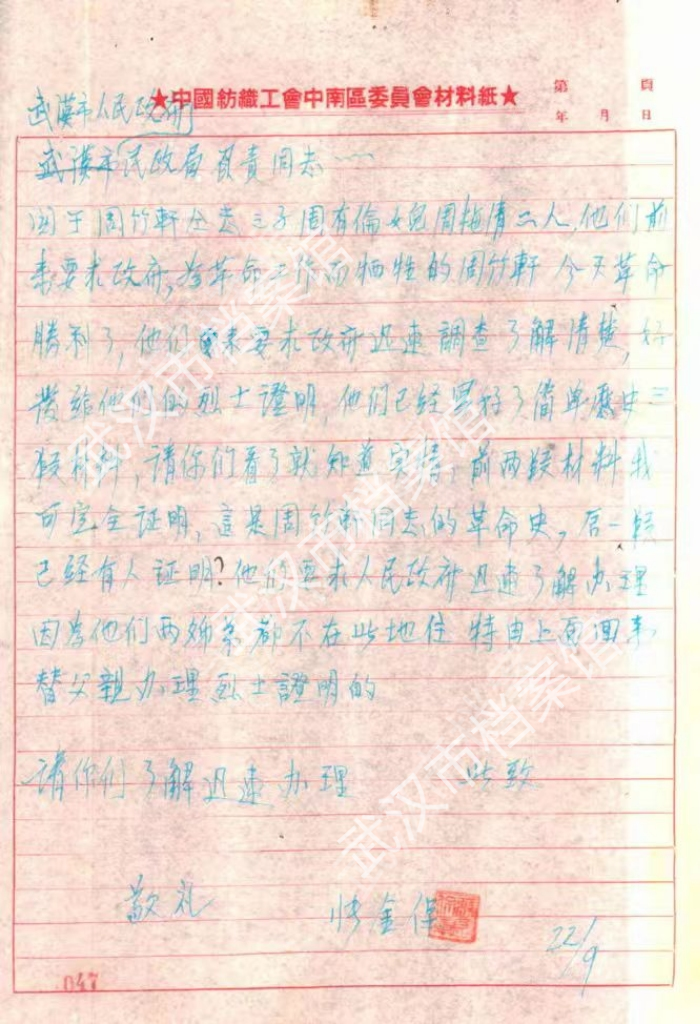 ★中國紡織工會中南區委員會材料紙★
第 頁
年 月 日
武漢市人民政府
武漢市民政局負責同志……
関于周竹軒仝志之子周有倫女兒周梅倩二人,他们前
来要求政府,为革命工作而牺牲的周竹軒 今天革命
勝利了,他们来要求政府迅速調查了解清楚,好
發給他们的烈士證明,他们已经写好了简单歷史三
段材料,请你们看了就知道实情,前两段材料我
可完全证明,這是周竹軒同志的革命史,后一段
已经有人证明?他们要求人民政府迅速了解办理
因为他们两姊弟都不在此地住 特由上面回来
替父親办理烈士證明的
请你们了解迅速办理 此致
敬礼
金保
22/9
047
武汉市档案馆
武汉市档案馆
武汉市档案馆